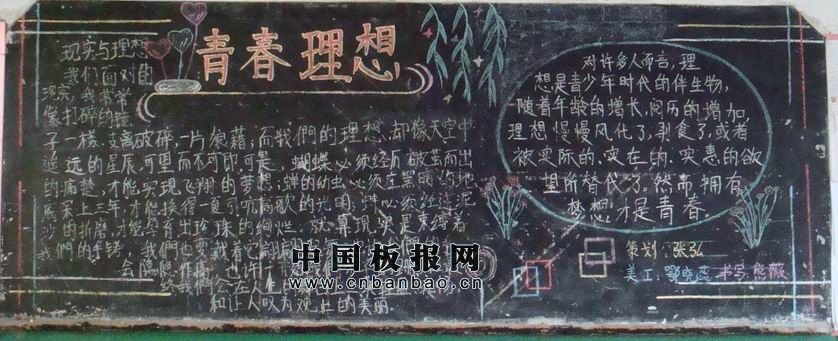 青春理想
现实与理想
我们面对的
现实,常常
像打碎的镜
子一样支离破碎,一片狼藉,而我們的理想,却像天空中
遥远的星辰,可望而不可即,可是,蝴蝶必须经历破茧而出
的痛楚,才能实现飞翔的梦想;蝉的幼虫必须在黑暗的地
底呆上三年,才能换得一夏引吭高歌的光明;蚌必须经过泥
沙的折磨,才能孕育出珍珠的绚烂。就算现实是束缚着
我們的手铐,我們也要戴着它翻
会隐隐作痛,也许
给我們会在人生
和让人叹为观止的美丽。
对许多人而言,理
想是青少年时代的伴生物,
随着年龄的增长,阅历的增加,
理想慢慢风化了,剥食了,或者
被实际的、实在的、实惠的欲
望所替代了。然而拥有
梦想才是青春。
策划:张弘
美工:鄂晓蕊 书写:熊薇
中国板报网
www.cnbanbao.cn